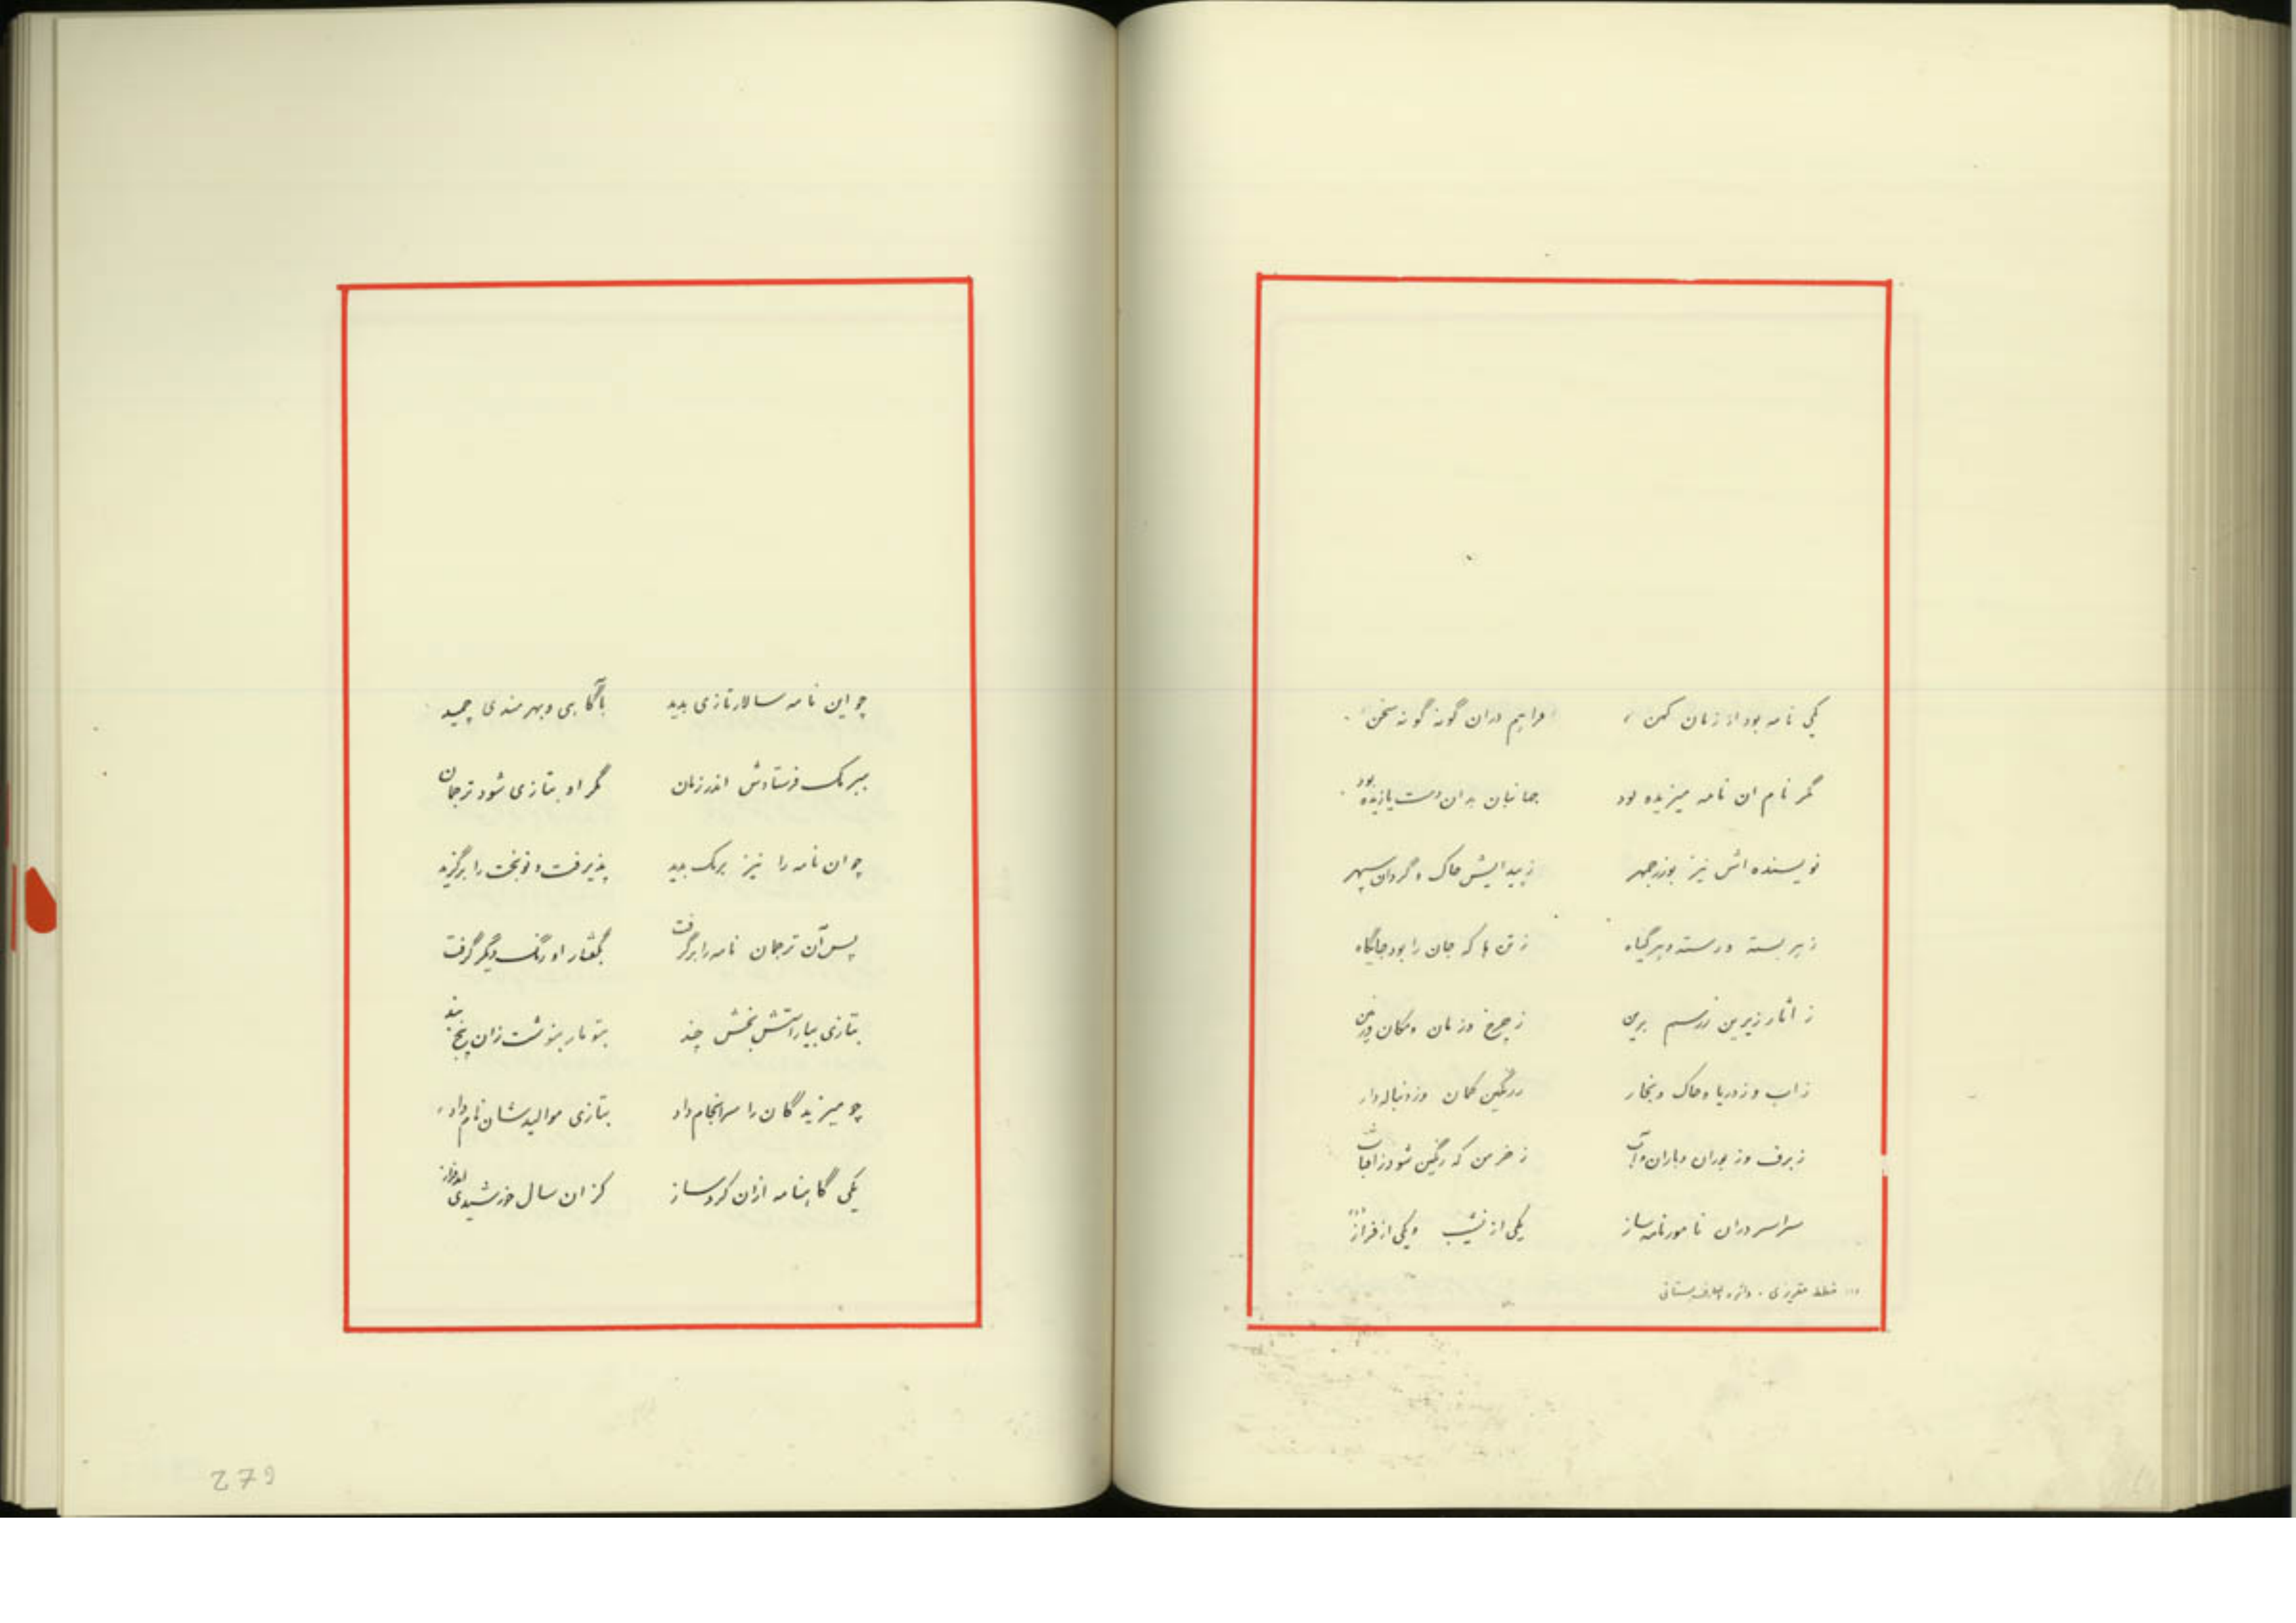 یکی نامه بود از زمان کهن فراهم دران گونه گونه سخن
مگر نام ان نامه میزیده بود جهانبان بدان دست یازیده بود
نویسنده اش نیز بوزرجمهر ز پیدایش خاک و گردان سپهر
ز بر بسته و رسته و هر گیاه ز تن ها که جان را بود جایگاه
ز اثار زیرین ز رسم برین ز چرخ و زمان و مکان و زمین
ز اب و ز دریا و خاک و بخار ز رنگین کمان و ز دنباله دار
ز برف و ز بوران و باران و آب ز خرمن که رنگین شود ز افتاب
سراسر دران نامور نامه ساز یکی از نشیب و یکی از فراز
خطط مقریزی . دائره المعارف بستانی
چو این نامه سالار تازی بدید باگاهی و بهر مندی چمید
ببرمک فرستادش اندر زمان مگر او بتازی شود ترجمان
چو ان نامه را نیز برمک بدید پذیرفت و نوبخت را برگزید
پس آن ترجمان نامه را برگرفت بگفتار او رنگ دیگر گرفت
بتازی بیاراستش بخش چند بتومار بنوشت زان پنج بند
چو میزیدگان را سرانجام داد بتازی موالیدشان نام داد
یکی گاهنامه ازان کرد ساز کز ان سال خورشیدی
279